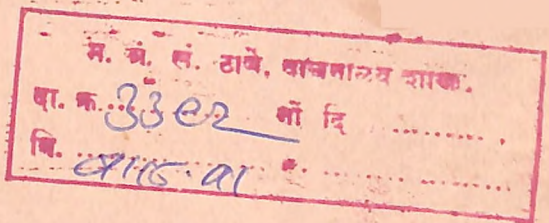 म. ग्रं. सं. ठाणे, वाचनालय शाखा.
दा. क्र. ३३९२ नों दि ..........
वि. ............ क्र. ............